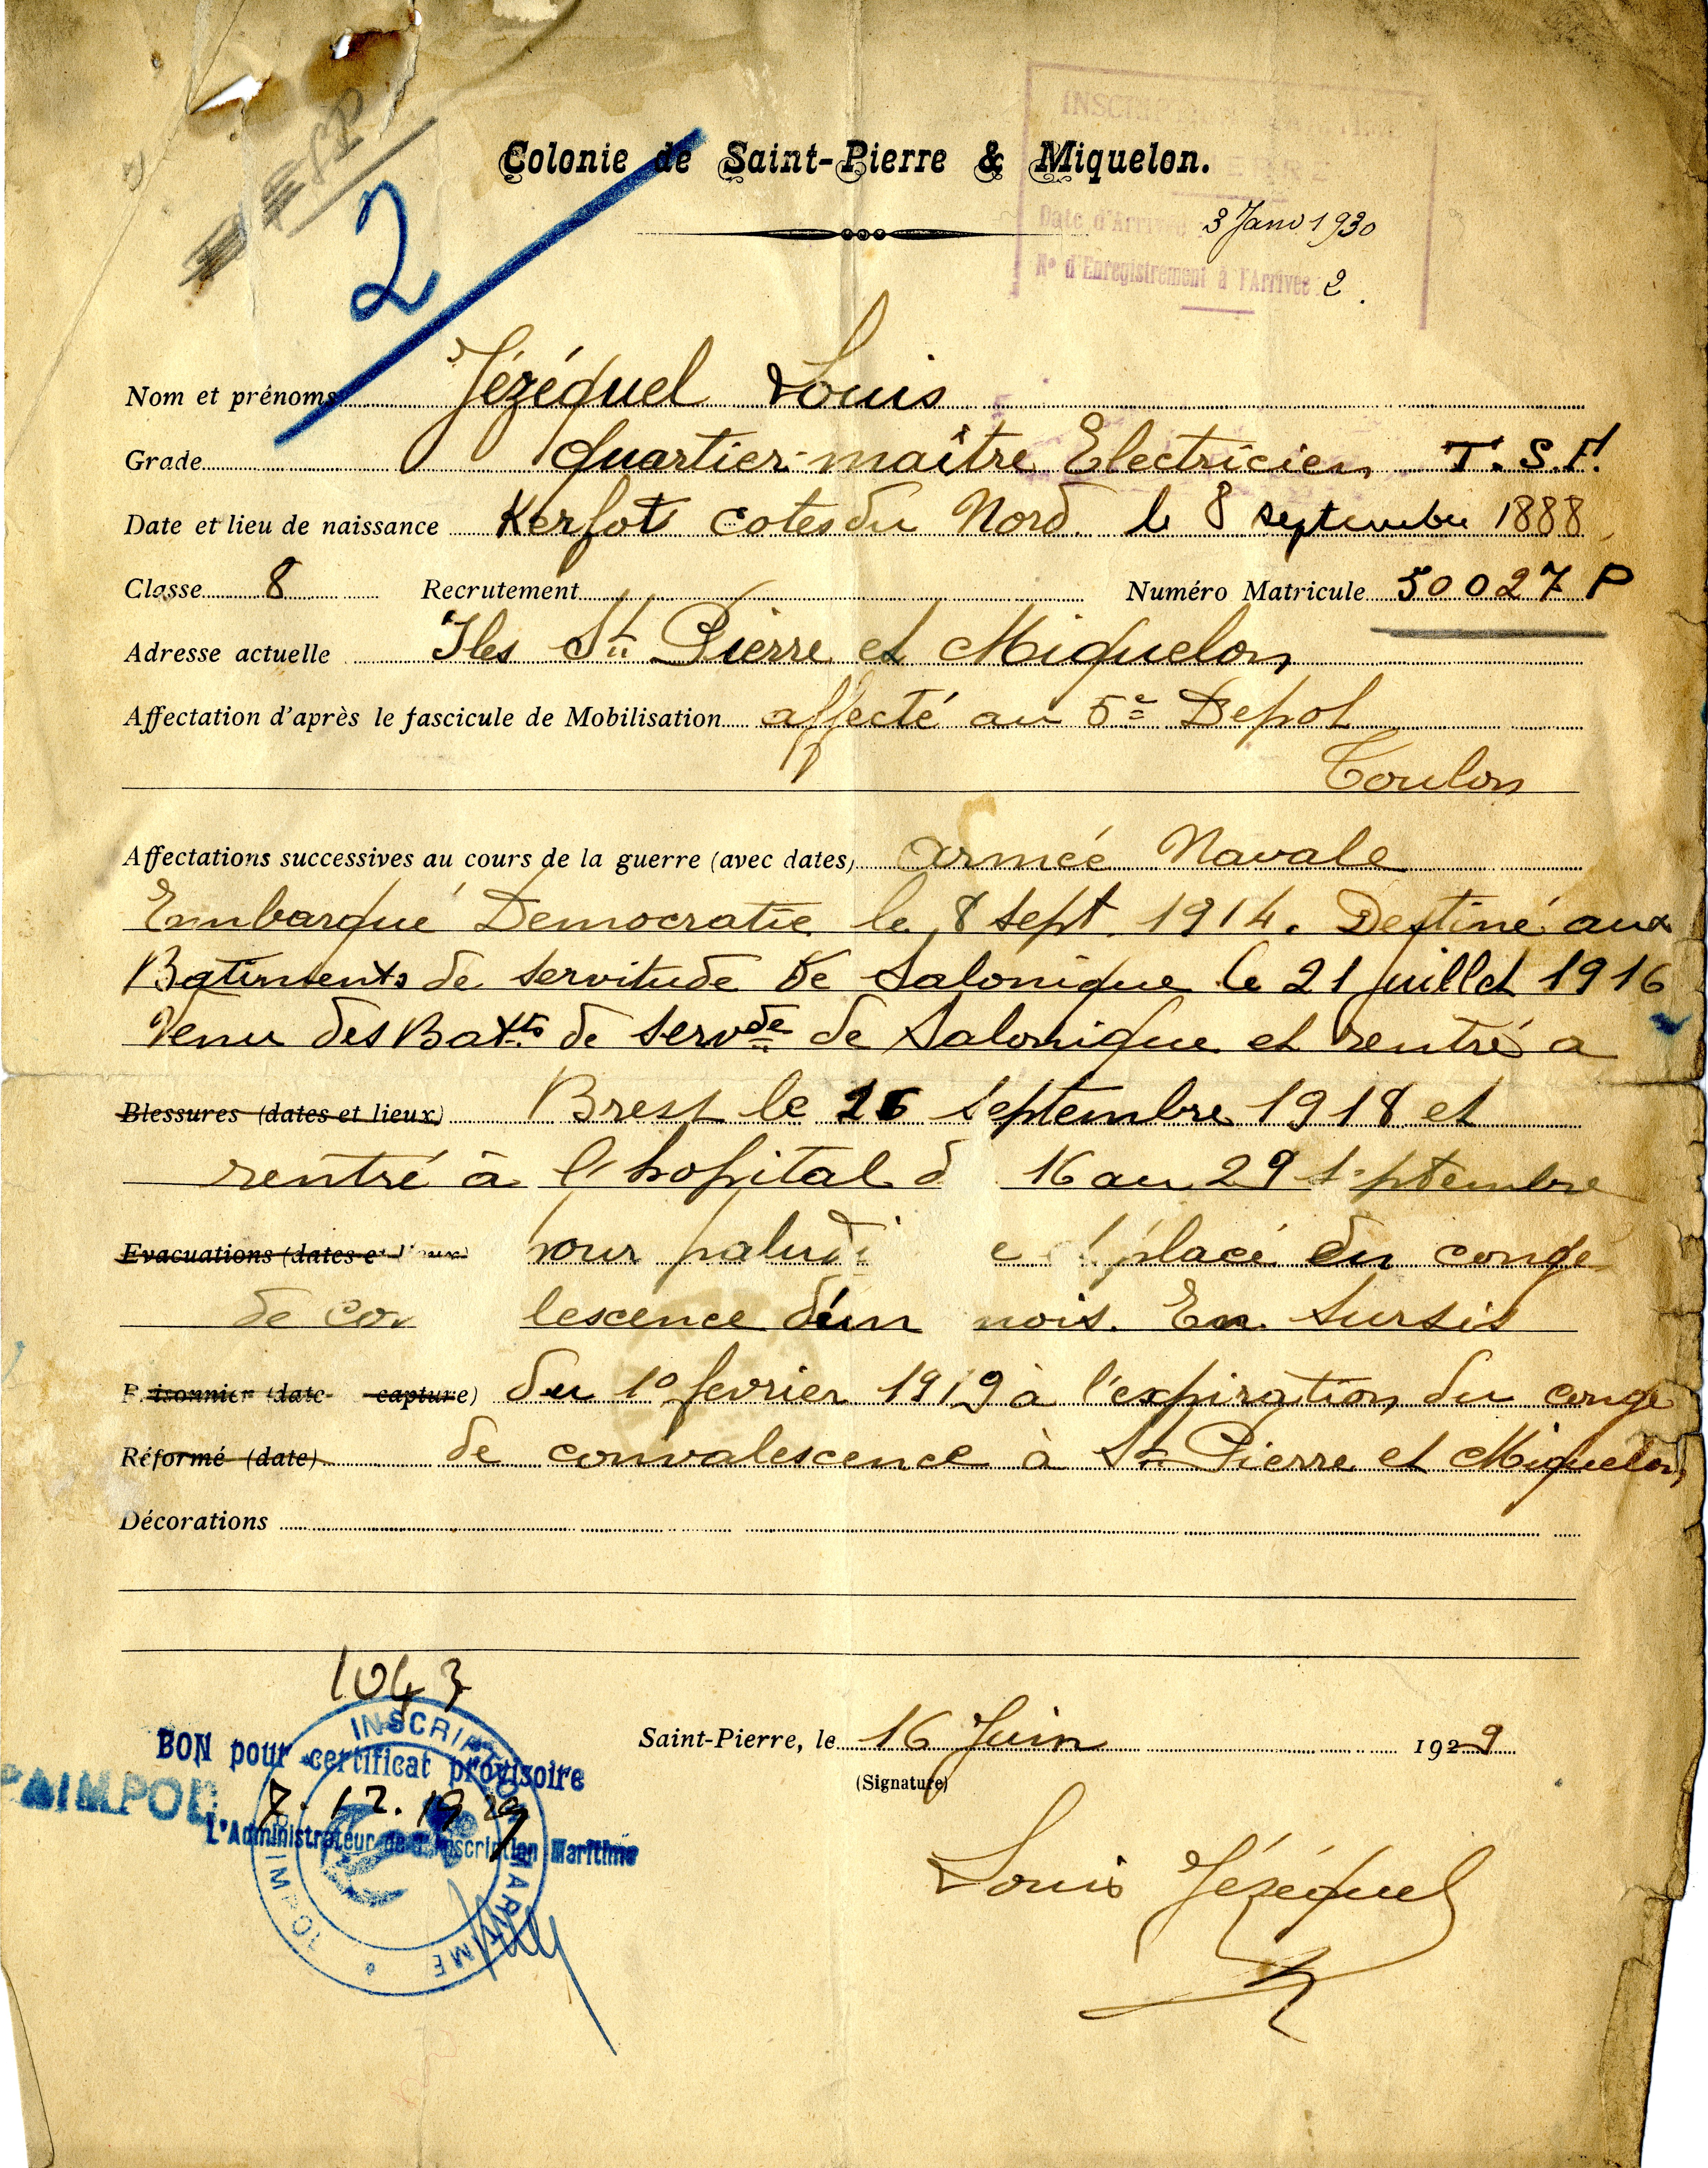 INSCRIPTION MARITIME
Colonie de Saint-Pierre & Miquelon.
Date d'Arrivée 3 Janv 1930
N° d'Enregistrement à l'Arrivée 2.
2
Nom et prénoms Jézéquel Louis
Grade Quartier-maître Electricien T.S.F.
Date et lieu de naissance Kerfot cotes du Nord le 8 septembre 1888
Classe 8 Recrutement Numéro Matricule 50027 P
Adresse actuelle Iles St Pierre et Miquelon
Affectation d'après le fascicule de Mobilisation affecté au 5e Depot
Toulon
Affectations successives au cours de la guerre (avec dates) Armée Navale
Embarqué Democratie le 8 sept 1914. Destiné aux
Batiments de servitude de Salonique le 21 juillet 1916
Venu des Batts de servde de Salonique et rentré a
Blessures (dates et lieux) Brest le 16 septembre 1918 et
rentré à l'hopital d 16 au 29 septembre
Evacuations (dates et lieux) pour paludi e placé en congé
de con lescence d'un mois. En sursis
Prisonnier (date capture) du 1o fevrier 1919 à l'expiration du congé
Réformé (date) de convalescence à St Pierre et Miquelon
Décorations
1043
Saint-Pierre, le 16 Juin 1929
(Signature)
BON pour certificat provisoire
PAIMPOL 7.12.1929
L'Administrateur de l'Inscription Maritime
INSCRIPTION MARITIME
Louis Jézéquel